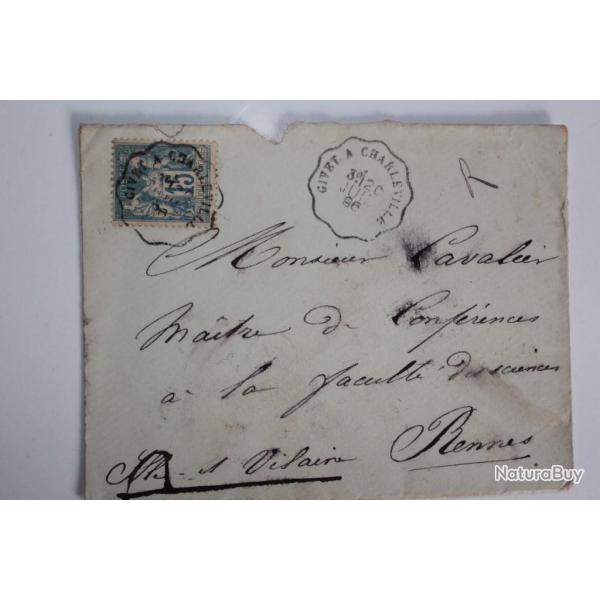 GIVET A CHARLEVILLE
15
GIVET A CHARLEVILLE
R
Monsieur Cavalier
Maître de Conférences
à la faculté de sciences
Rennes
Ille et Vilaine
NaturaBuy